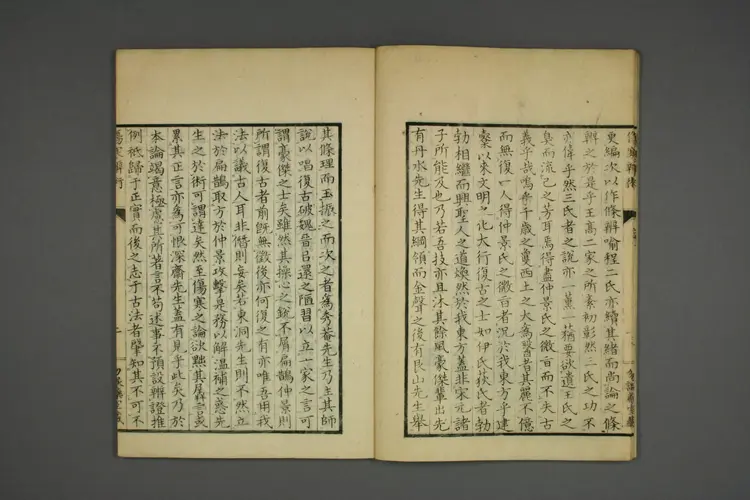 更編次以作條辨喻程二氏亦續其緒而尚論之條
辨之於是乎王高二家之所素初彰然二氏之功不
亦偉乎然三氏者之說亦一薰一蕕要欲遺王氏之
臭而流己之芳耳焉得盡仲景氏之微旨而不失古
義乎哉嗚乎千歲之夐西土之大為醫者其麗不億
而無復一人得仲景氏之微旨者況於我東方乎建
櫜以來文明之化大行復古之士如伊氏荻氏者勃
勃相繼而興聖人之道燦然於我東方蓋非宋元諸
子所能及也乃若吾技亦且沐其餘風豪傑輩出先
有丹水先生得其綱領而金聲之後有艮山先生舉
其條理而玉振之而次之者為秀菴先生乃主其師
說以唱復古破魏晉已還之陋習以立一家之言可
謂豪傑之士矣雖然其操心之銳不屑扁鵲仲景則
所謂復古者前既無徵後亦何復之有亦唯吾用我
法以議古人耳非僭則妄矣若東洞先生則不然立
法於扁鵲取方於仲景攻擊是務以解溫補之惑先
生之於術可謂達矣然至傷寒之論欲黜其
累其正言亦為可恨深齋先生蓋有見乎此矣乃於
本論竭意極慮其所著言不苟述事不預設辨證推
例祗歸于正實而後之志于古法者肇知其不可不